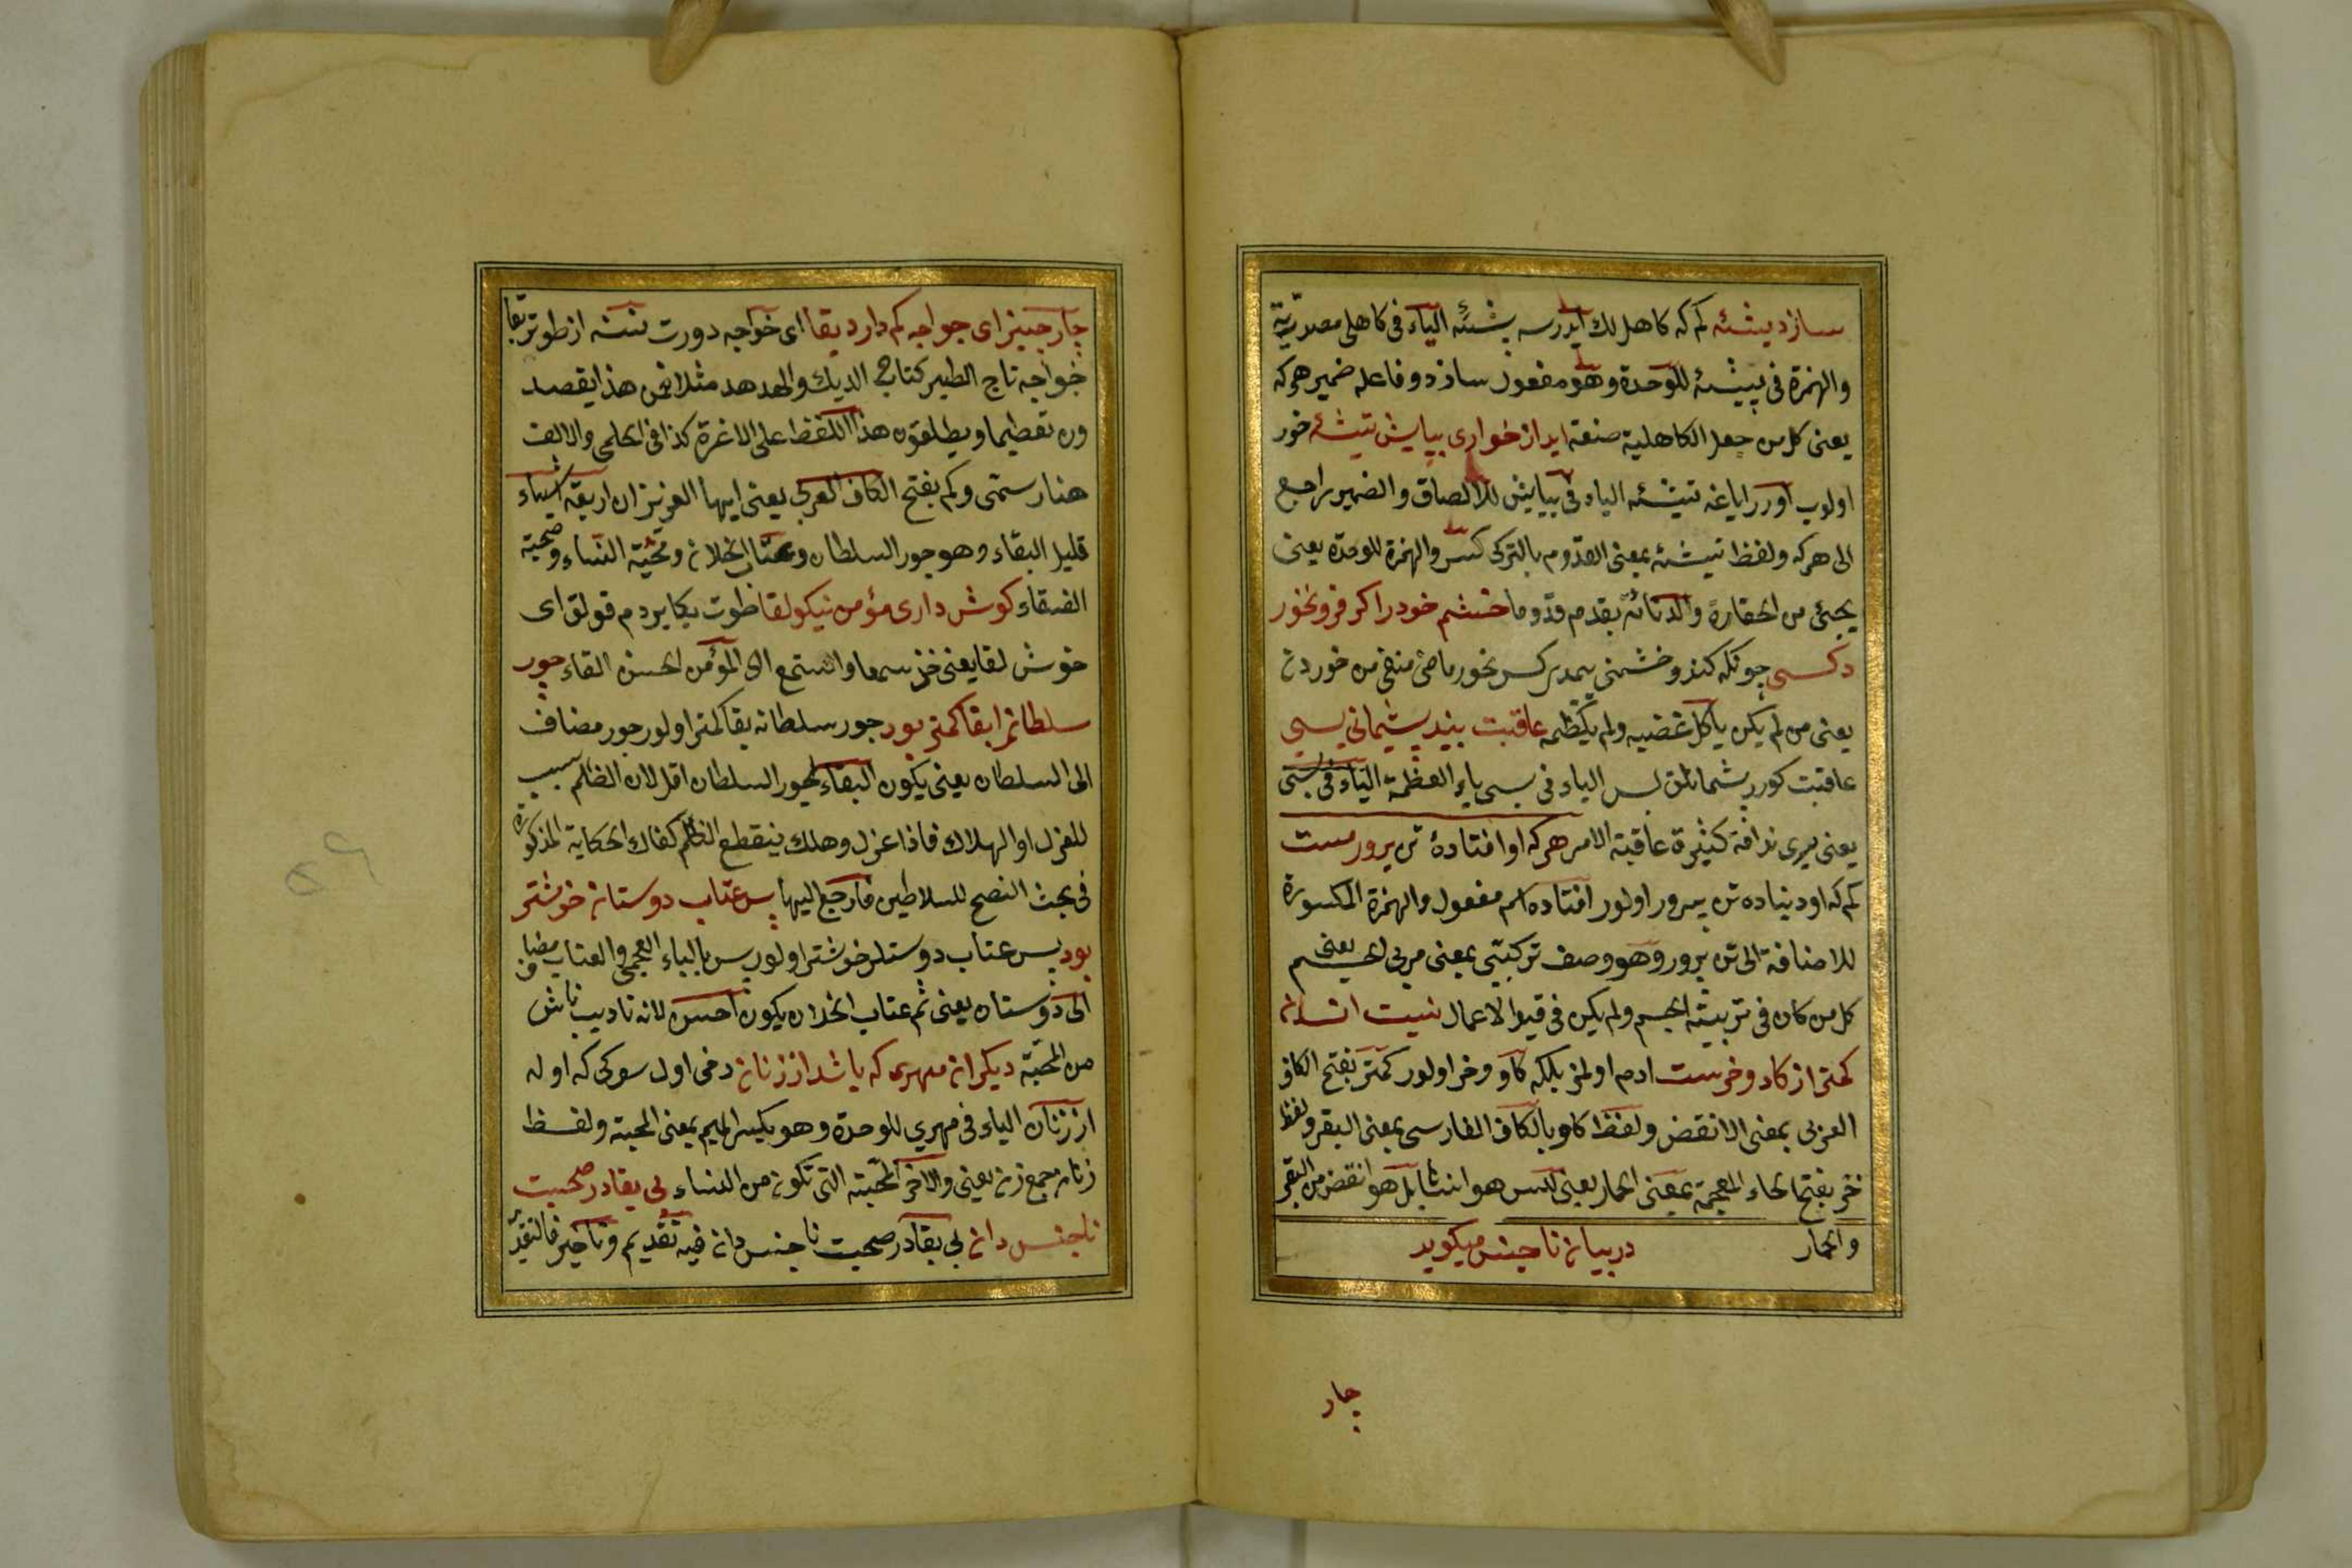 سازد پیشئه كم كه كاهل لك ایدرسه پیشئه الياء فى كاهلى مصدرية
والهمزة فى پیشئه للوحدة وهو مفعول سازد وفاعله ضمير هركه
يعنى كل من جعل الكاهلية صنعة ايد از خوارى بپايش تيشئه خور
اولوب اورر اياغه تيشئه الياء فى بپايش للالصاق والضمير راجع
الى هركه ولفظ تيشئه بمعنى القدوم بالتركى كسر والهمزة للوحدة يعنى
يجئ من الحقارة والدنائة بقدم قدوما خشم خودرا كر فرو نخورد
كسى چونكه كندو خشمنى يمدى كسر نخورد ماضئ منفى من خوردن
يعنى من لم يكن ياكل غضبه ولم يكظمه عاقبت بيند پشيمانى بسى
عاقبت كورر پشمانلق بس الياء فى بسى ياء العظمة الياء فى بسى
يعنى يرى ندامة كثيرة عاقبة الامر هركه او افتادۀ تن پرورست
كم كه او دنياده تن پرور اولور افتاده اسم مفعول والهمزة المكسورة
للاضافة الى تن پرور وهو وصف تركيبى بمعنى مربى الجسم يعنى
كل من كان فى تربيته الجسم ولم يكن فى قيد الاعمال نيست انسان
كمتر از كاو وخرست ادم اولمز بلكه كاو وخر اولور كمتر بفتح الكاف
العربى بمعنى الانقض ولفظ كاو بالكاف الفارسى بمعنى البقر ولفظ
خر بفتح الخاء المعجمة بمعنى الحمار يعنى ليس هو انسانا بل هو انقض من البقر
والحمار در بيان ناجنس ميكويد
چار
چار چيز اى خواجه كم دارد بقا اى خواجه دورت نسنه از طوتر بقا
خواجه تاج الطير كتاج الديك والهدهد مثلا فمن هذا يقصد
ون تعظيما ويطلقون هذا اللفظ على الاعزة كذا فى الحلمى والالف
هنا رسمى وكم بفتح الكاف العربى يعنى ايها العزيز ان اربعة اشياء
قليل البقاء وهو جور السلطان وعتاب الخلان ومحبة النساء وصحبة
الفسقاء كوش دارى مؤمن نيكو لقا طوت بكا يردم قولق اى
خوش لقا يعنى خذ سمعا واستمع الى المؤمن الحسن القاء جور
سلطانرا بقا كمتر بود جور سلطانه بقا كمتر اولور جور مضاف
الى السلطان يعنى يكون البقاء لجور السلطان اقل لان الظلم سبب
للعزل او الهلاك فاذا عزل وهلك ينقطع الظلم كفاك الحكاية المذكورة
فى بحث النصح للسلاطين فارجع اليها پس عتاب دوستان خوشتر
بود پس عتاب دوستلر خوشتر اولور پس بالباء العجمى والعتاب مضاف
الى دوستان يعنى ثم عتاب الخلان يكون احسن لانه تاديب ناش
من المحبة ديكران مهرى كه باشد از زنان دخى اول سوكى كه اوله
از زنان الياء فى مهرى للوحدة وهو بكسر الميم بمعنى المحبة ولفظ
زنان جمع زن يعنى والاخر المحبة التى تكون من النساء بى بقا در صحبت
ناجنس دان بى بقا در صحبت ناجنس دان فيه تقديم وتاخير فالتقدير